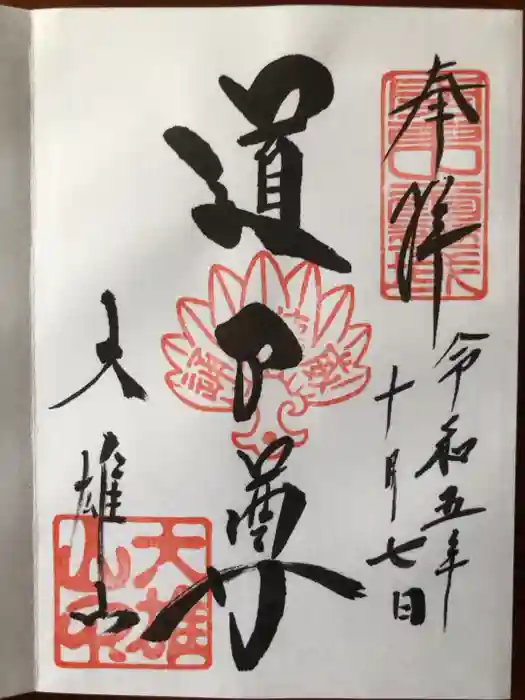 奉拝
令和五年
十月七日
道了尊
大雄山
大雄
山印